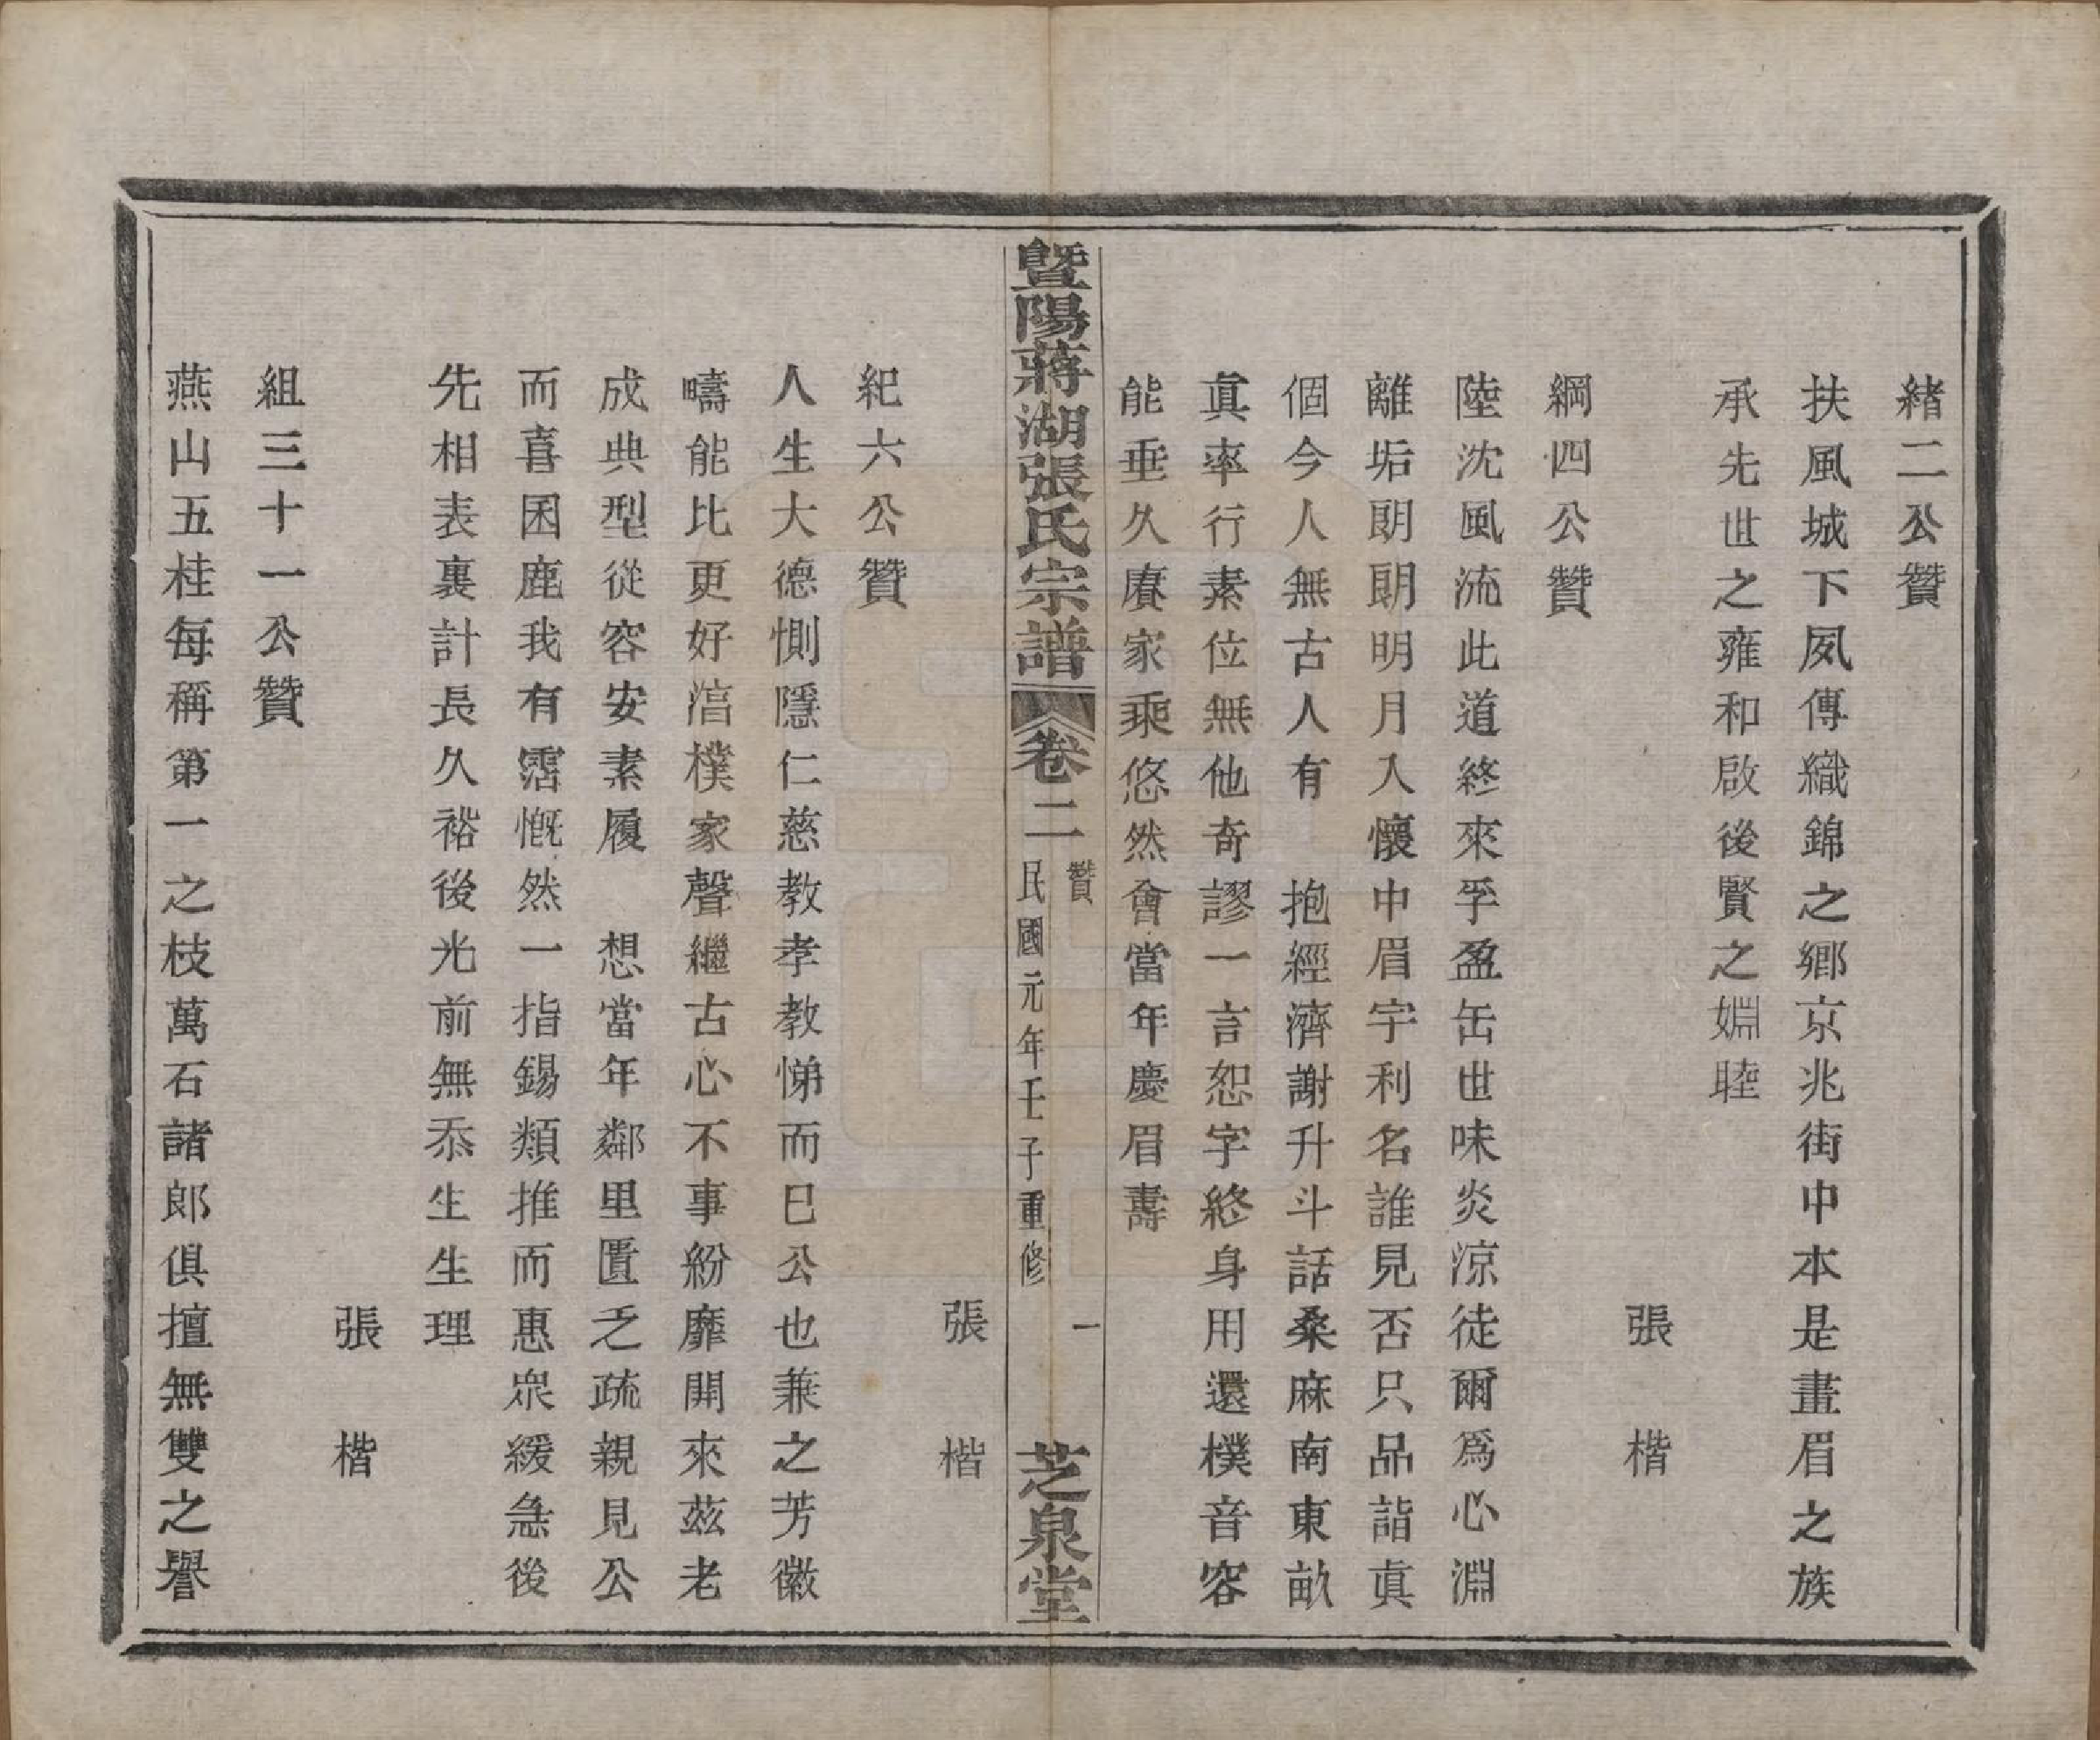 緒二公贊
扶風城下夙傳織錦之鄉京兆街中本是畫眉之族
承先世之雍和啟後賢之婣睦
張　楷
綱四公贊
陸沈風流此道終來孚盈缶世味炎涼徒爾爲心淵
離垢朗朗明月入懷中眉宇利名誰見否只品詣眞
個今人無古人有　抱經濟謝升斗話桑麻南東畝
眞率行素位無他奇謬一言恕字終身用還樸音容
能垂久賡家乘悠然會當年慶眉壽
暨陽蔣湖張氏宗譜
卷二
贊
民國元年壬子重修
一
芝泉堂
張　楷
紀六公贊
人生大德惻隱仁慈教孝教悌而已公也兼之芳徽
疇能比更好湻樸家聲繼古心不事紛靡開來茲老
成典型從容安素履　想當年鄰里匱乏疏親見公
而喜囷鹿我有霑慨然一指錫類推而惠眾緩急後
先相表裏計長久裕後光前無忝生生理
張　楷
組三十一公贊
燕山五桂每稱第一之枝萬石諸郎俱擅無雙之譽